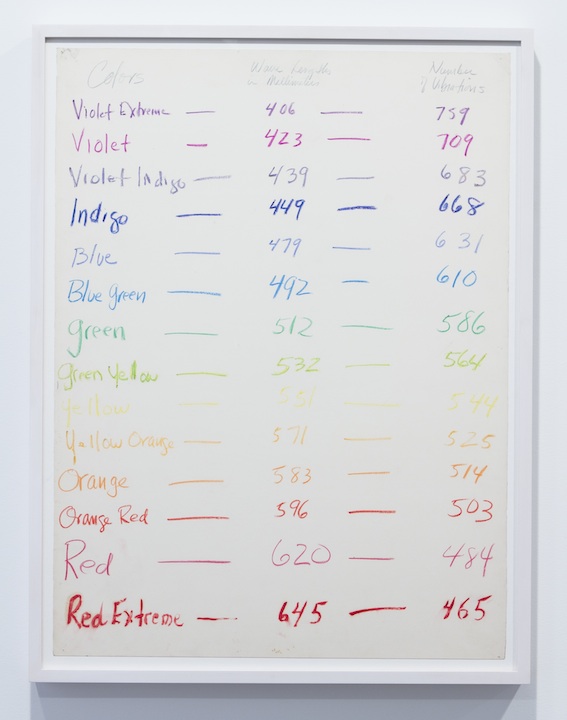 Colors Wave Lengths in Millimicrons Number of Vibrations
Violet Extreme — 406 — 759
Violet — 423 — 709
Violet Indigo — 439 — 683
Indigo — 449 — 668
Blue — 479 — 631
Blue Green — 492 — 610
Green — 512 — 586
Green Yellow — 532 — 564
Yellow — 551 — 544
Yellow Orange — 571 — 525
Orange — 583 — 514
Orange Red — 596 — 503
Red — 620 — 484
Red Extreme — 645 — 465